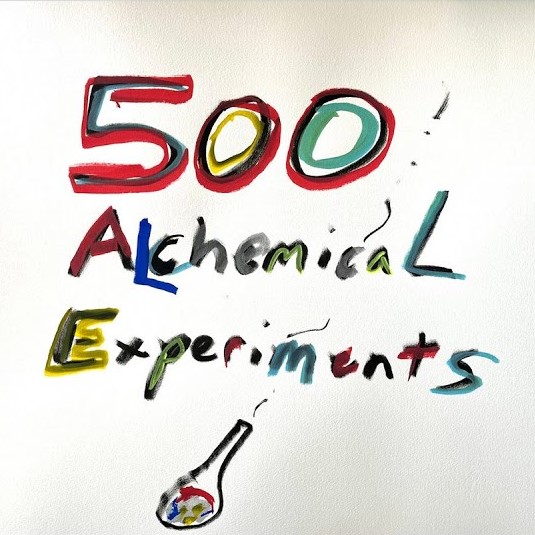 500
ALchemicaL
Experiments